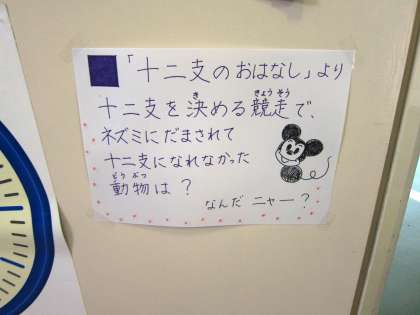 「十二支のおはなし」より
十二支を決める競走で、
ネズミにだまされて
十二支になれなかった
動物は？
なんだ ニャー？